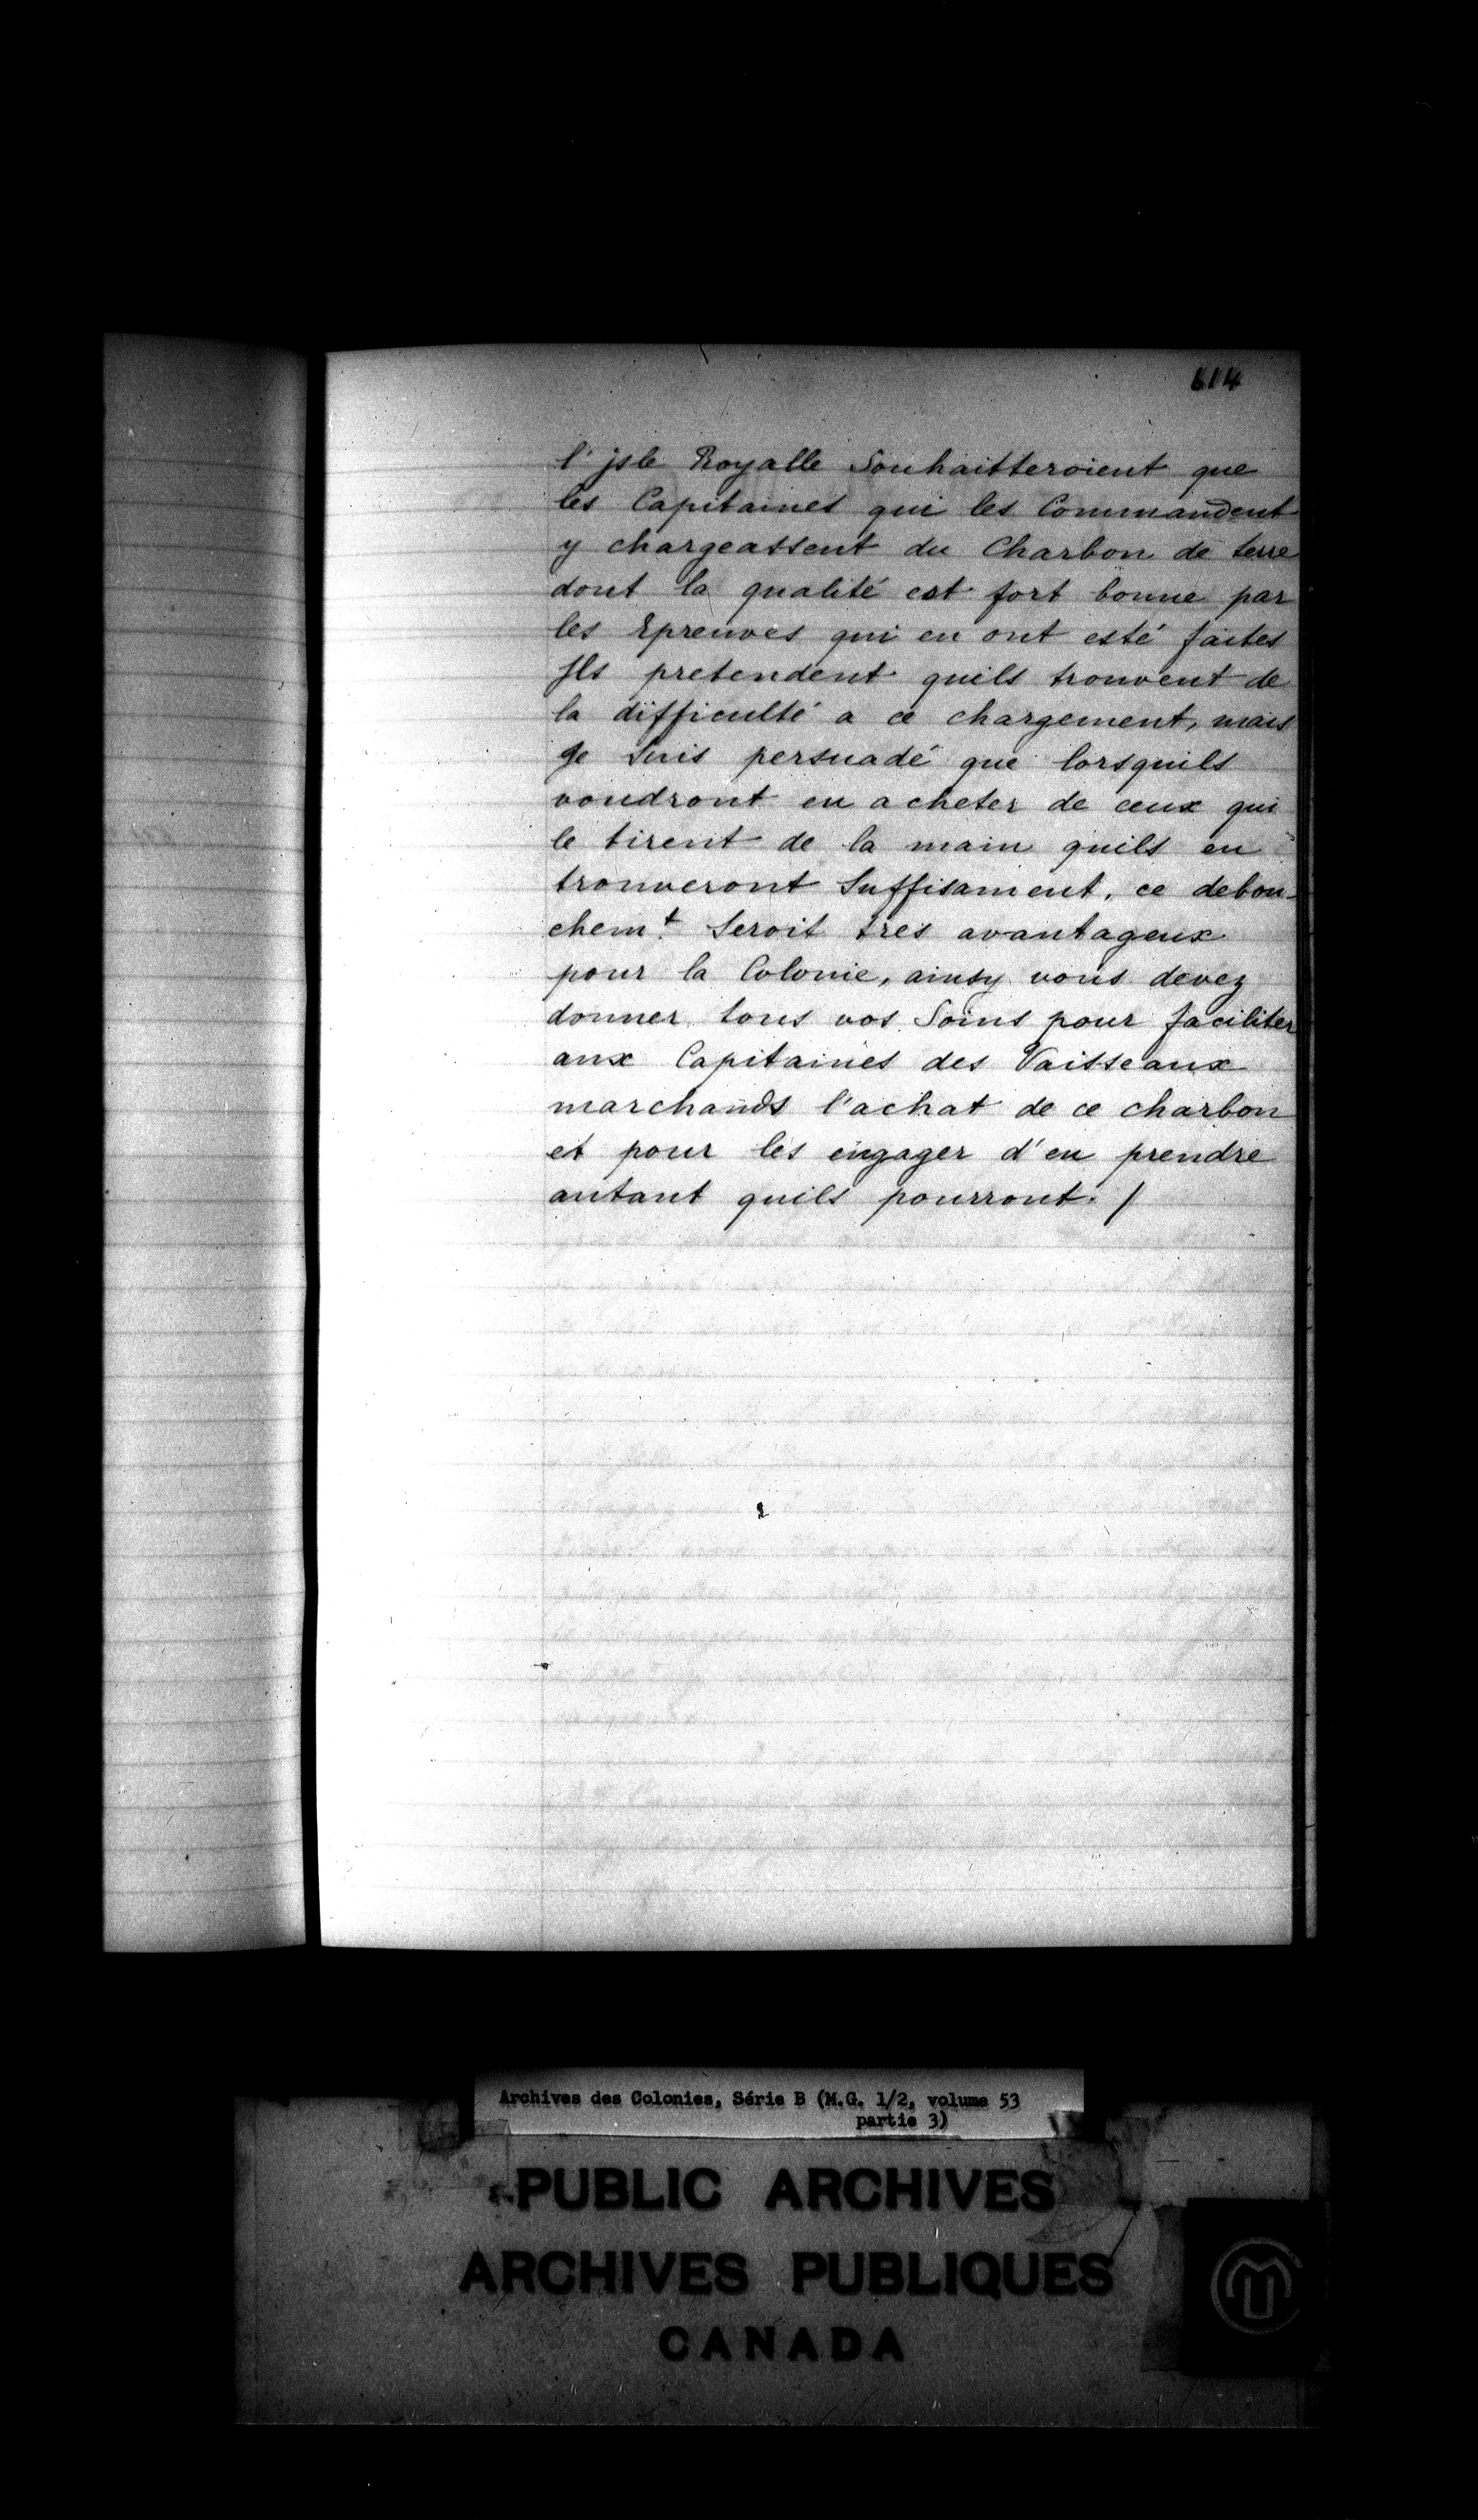 614
l'jsle Royalle Souhaitteroient que
les Capitaines qui les Commandent
y chargeassent du Charbon de terre
dont la qualité est fort bonne par
les Epreuves qui en ont esté faites
Jls pretendent quils trouvent de
la difficulté a ce chargement, mais
Je Suis persuadé que lorsquils
voudront en acheter de ceux qui
le tirent de la main quils en
trouveront Suffisament, ce debou-
chemt. Seroit tres avantageux
pour la Colonie, ainsy vous devez
donner tous vos Soins pour faciliter
aux Capitaines des Vaisseaux
marchands l'achat de ce charbon
et pour les engager d'en prendre
autant quils pourront. /
Archives des Colonies, Série B (M.G. 1/2, volume 53
partie 3)
PUBLIC ARCHIVES
ARCHIVES PUBLIQUES
CANADA